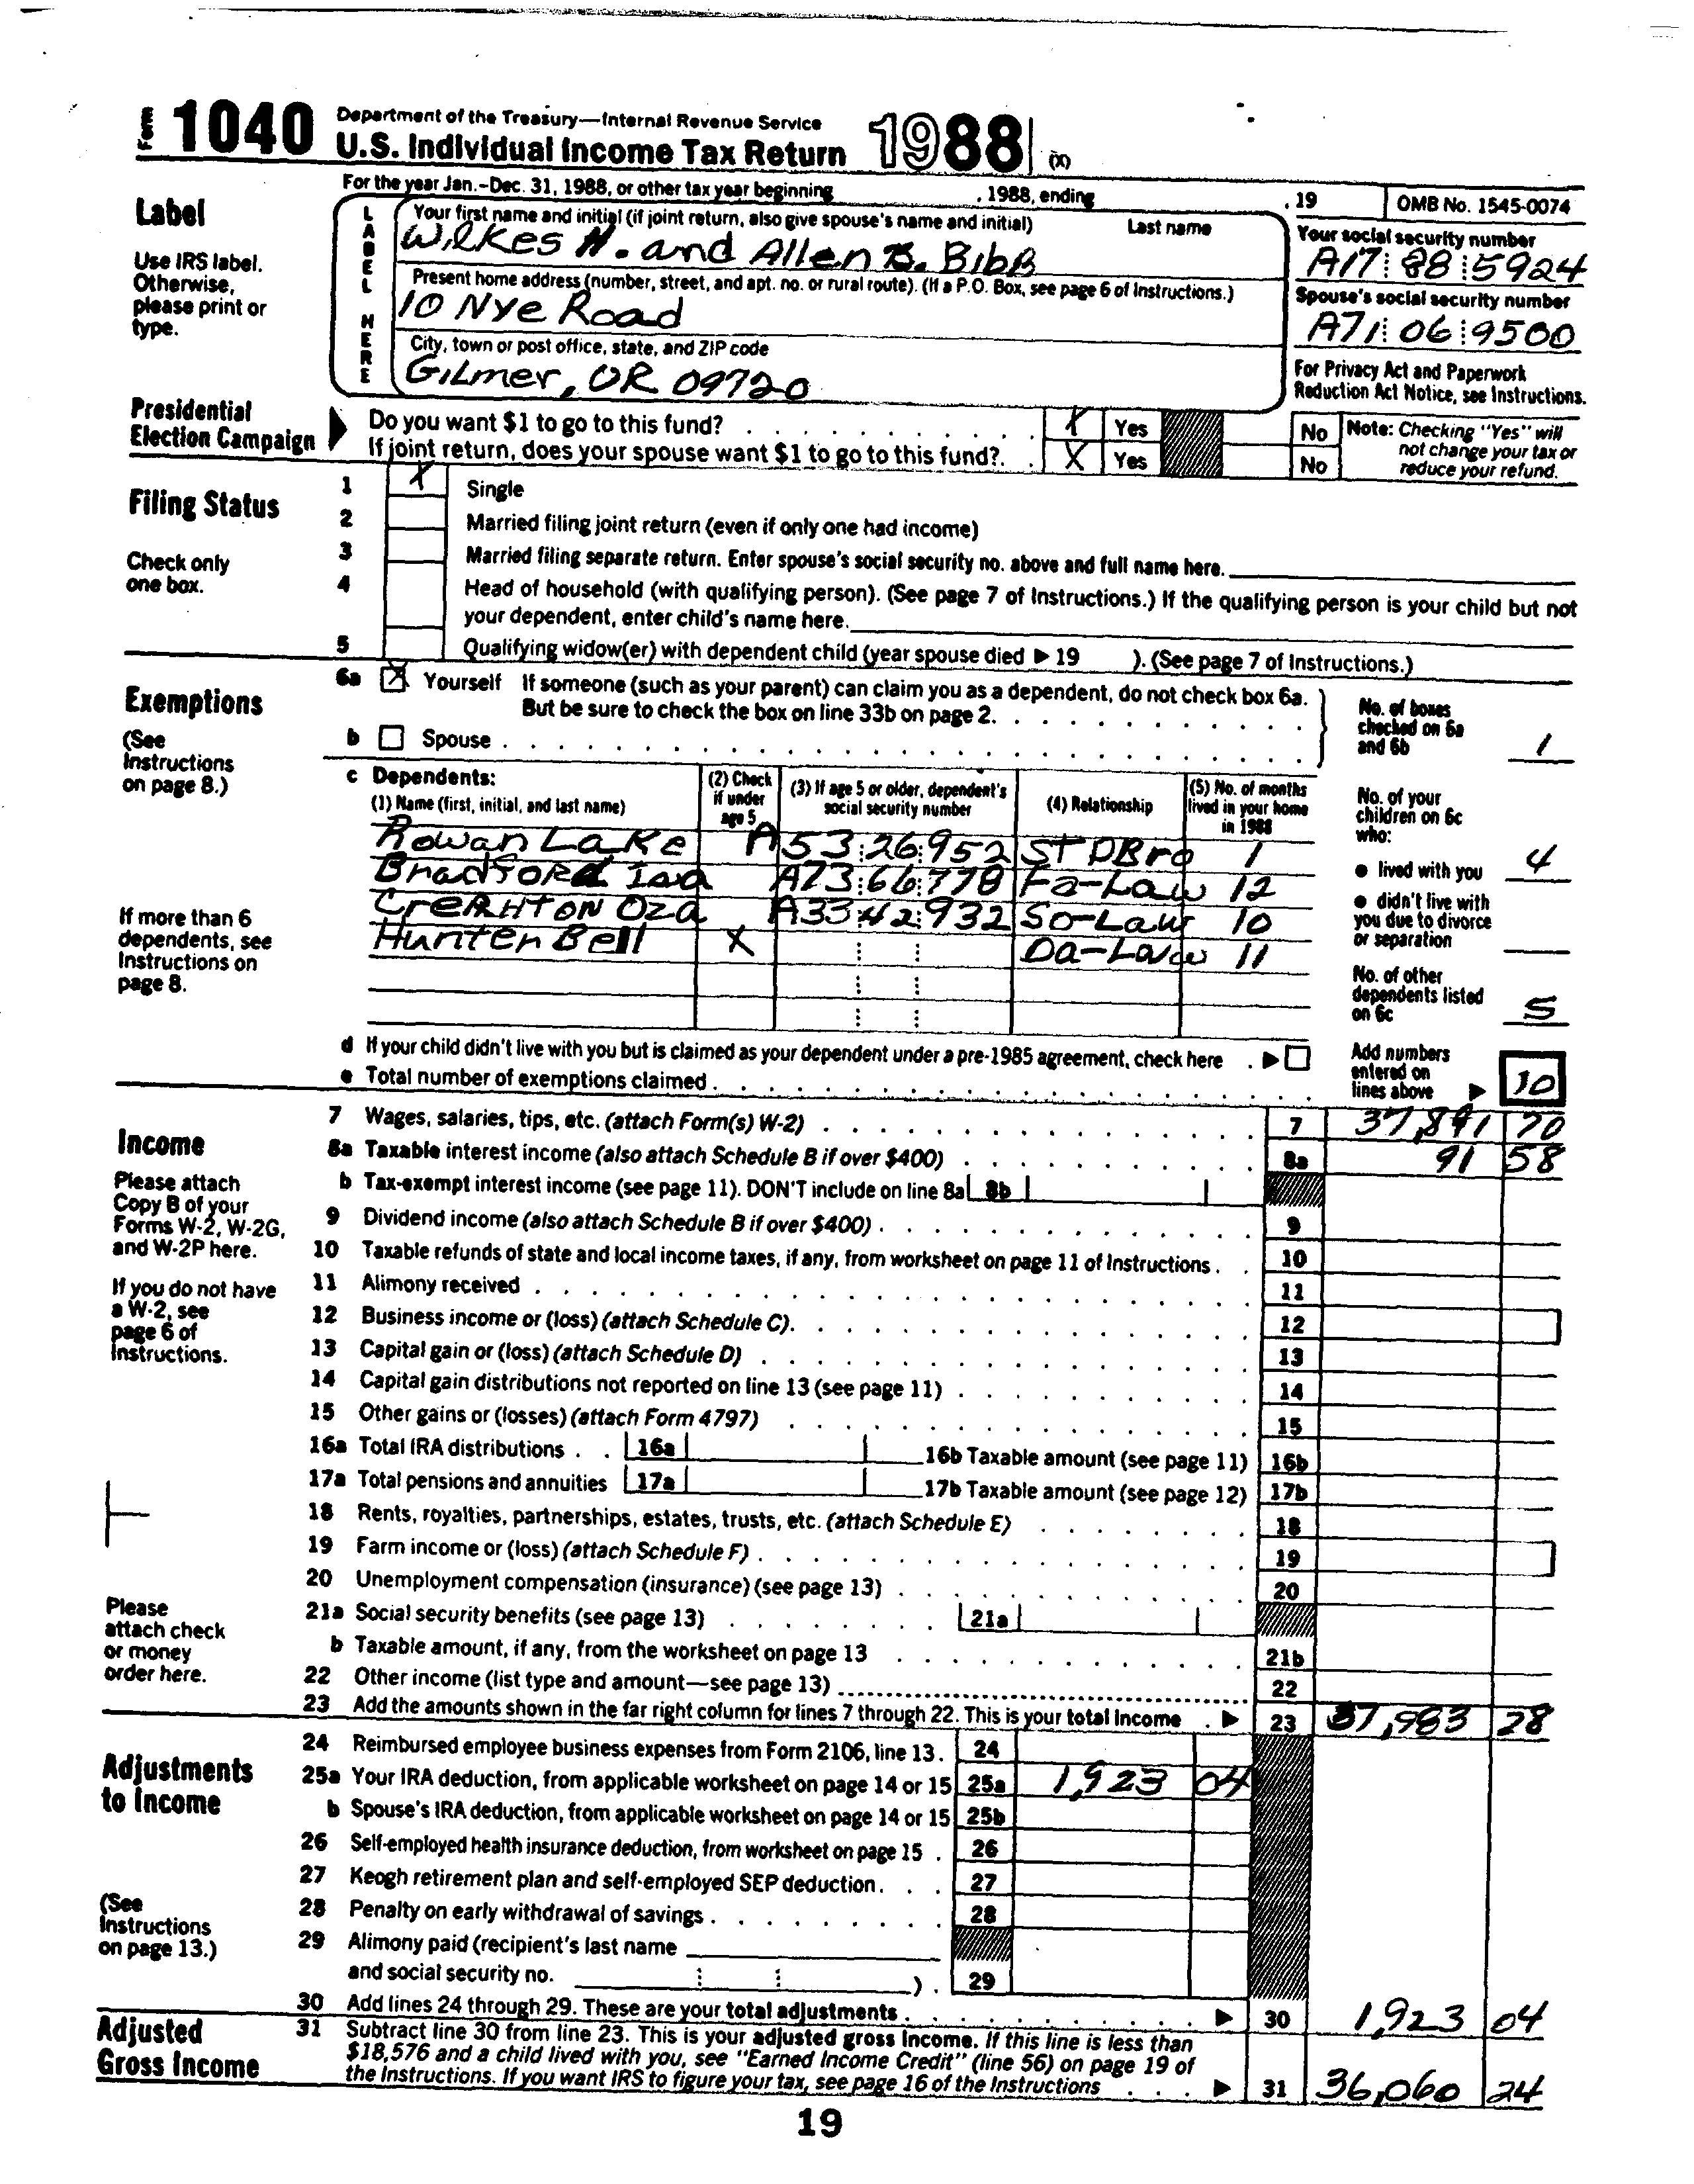 Form 1040 Department of the Treasury—Internal Revenue Service
U.S. Individual Income Tax Return 1988 (X)
For the year Jan.-Dec. 31, 1988, or other tax year beginning , 1988, ending , 19 OMB No. 1545-0074
Label
Use IRS label. Otherwise, please print or type.
LABEL HERE
Your first name and initial (if joint return, also give spouse's name and initial) Last name
Wilkes H. and Allen B. Bibb
Your social security number
A17 88 5924
Present home address (number, street, and apt. no. or rural route). (If a P.O. Box, see page 6 of Instructions.)
10 Nye Road
Spouse's social security number
A71 06 9500
City, town or post office, state, and ZIP code
Gilmer, OR 09720
For Privacy Act and Paperwork Reduction Act Notice, see Instructions.
Presidential Election Campaign
Do you want $1 to go to this fund? X Yes No
If joint return, does your spouse want $1 to go to this fund? X Yes No
Note: Checking "Yes" will not change your tax or reduce your refund.
Filing Status
Check only one box.
1 X Single
2 Married filing joint return (even if only one had income)
3 Married filing separate return. Enter spouse's social security no. above and full name here.
4 Head of household (with qualifying person). (See page 7 of Instructions.) If the qualifying person is your child but not
your dependent, enter child's name here.
5 Qualifying widow(er) with dependent child (year spouse died ▶ 19 ). (See page 7 of Instructions.)
Exemptions
(See Instructions on page 8.)
6a X Yourself If someone (such as your parent) can claim you as a dependent, do not check box 6a.
But be sure to check the box on line 33b on page 2.
b Spouse
No. of boxes checked on 6a and 6b 1
c Dependents:
(1) Name (first, initial, and last name) (2) Check if under age 5 (3) If age 5 or older, dependent's social security number (4) Relationship (5) No. of months lived in your home in 1988
Rowan Lake A53 26 952 STPBro 1
Bradford Isa A73 66 778 Fa-Law 12
Creighton Oza A33 42 932 So-Law 10
Hunter Bell X Da-Law 11
If more than 6 dependents, see Instructions on page 8.
No. of your children on 6c who:
• lived with you 4
• didn't live with you due to divorce or separation
No. of other dependents listed on 6c 5
d If your child didn't live with you but is claimed as your dependent under a pre-1985 agreement, check here ▶
e Total number of exemptions claimed
Add numbers entered on lines above ▶ 10
Income
Please attach Copy B of your Forms W-2, W-2G, and W-2P here.
If you do not have a W-2, see page 6 of Instructions.
Please attach check or money order here.
7 Wages, salaries, tips, etc. (attach Form(s) W-2) 7 37,891 70
8a Taxable interest income (also attach Schedule B if over $400) 8a 91 58
b Tax-exempt interest income (see page 11). DON'T include on line 8a 8b
9 Dividend income (also attach Schedule B if over $400) 9
10 Taxable refunds of state and local income taxes, if any, from worksheet on page 11 of Instructions 10
11 Alimony received 11
12 Business income or (loss) (attach Schedule C) 12
13 Capital gain or (loss) (attach Schedule D) 13
14 Capital gain distributions not reported on line 13 (see page 11) 14
15 Other gains or (losses) (attach Form 4797) 15
16a Total IRA distributions 16a 16b Taxable amount (see page 11) 16b
17a Total pensions and annuities 17a 17b Taxable amount (see page 12) 17b
18 Rents, royalties, partnerships, estates, trusts, etc. (attach Schedule E) 18
19 Farm income or (loss) (attach Schedule F) 19
20 Unemployment compensation (insurance) (see page 13) 20
21a Social security benefits (see page 13) 21a
b Taxable amount, if any, from the worksheet on page 13 21b
22 Other income (list type and amount—see page 13) 22
23 Add the amounts shown in the far right column for lines 7 through 22. This is your total income ▶ 23 37,983 28
Adjustments to Income
(See Instructions on page 13.)
24 Reimbursed employee business expenses from Form 2106, line 13. 24
25a Your IRA deduction, from applicable worksheet on page 14 or 15 25a 1,923 04
b Spouse's IRA deduction, from applicable worksheet on page 14 or 15 25b
26 Self-employed health insurance deduction, from worksheet on page 15 26
27 Keogh retirement plan and self-employed SEP deduction 27
28 Penalty on early withdrawal of savings 28
29 Alimony paid (recipient's last name
and social security no. ) 29
30 Add lines 24 through 29. These are your total adjustments ▶ 30 1,923 04
Adjusted Gross Income
31 Subtract line 30 from line 23. This is your adjusted gross income. If this line is less than
$18,576 and a child lived with you, see "Earned Income Credit" (line 56) on page 19 of
the Instructions. If you want IRS to figure your tax, see page 16 of the Instructions ▶ 31 36,060 24
19